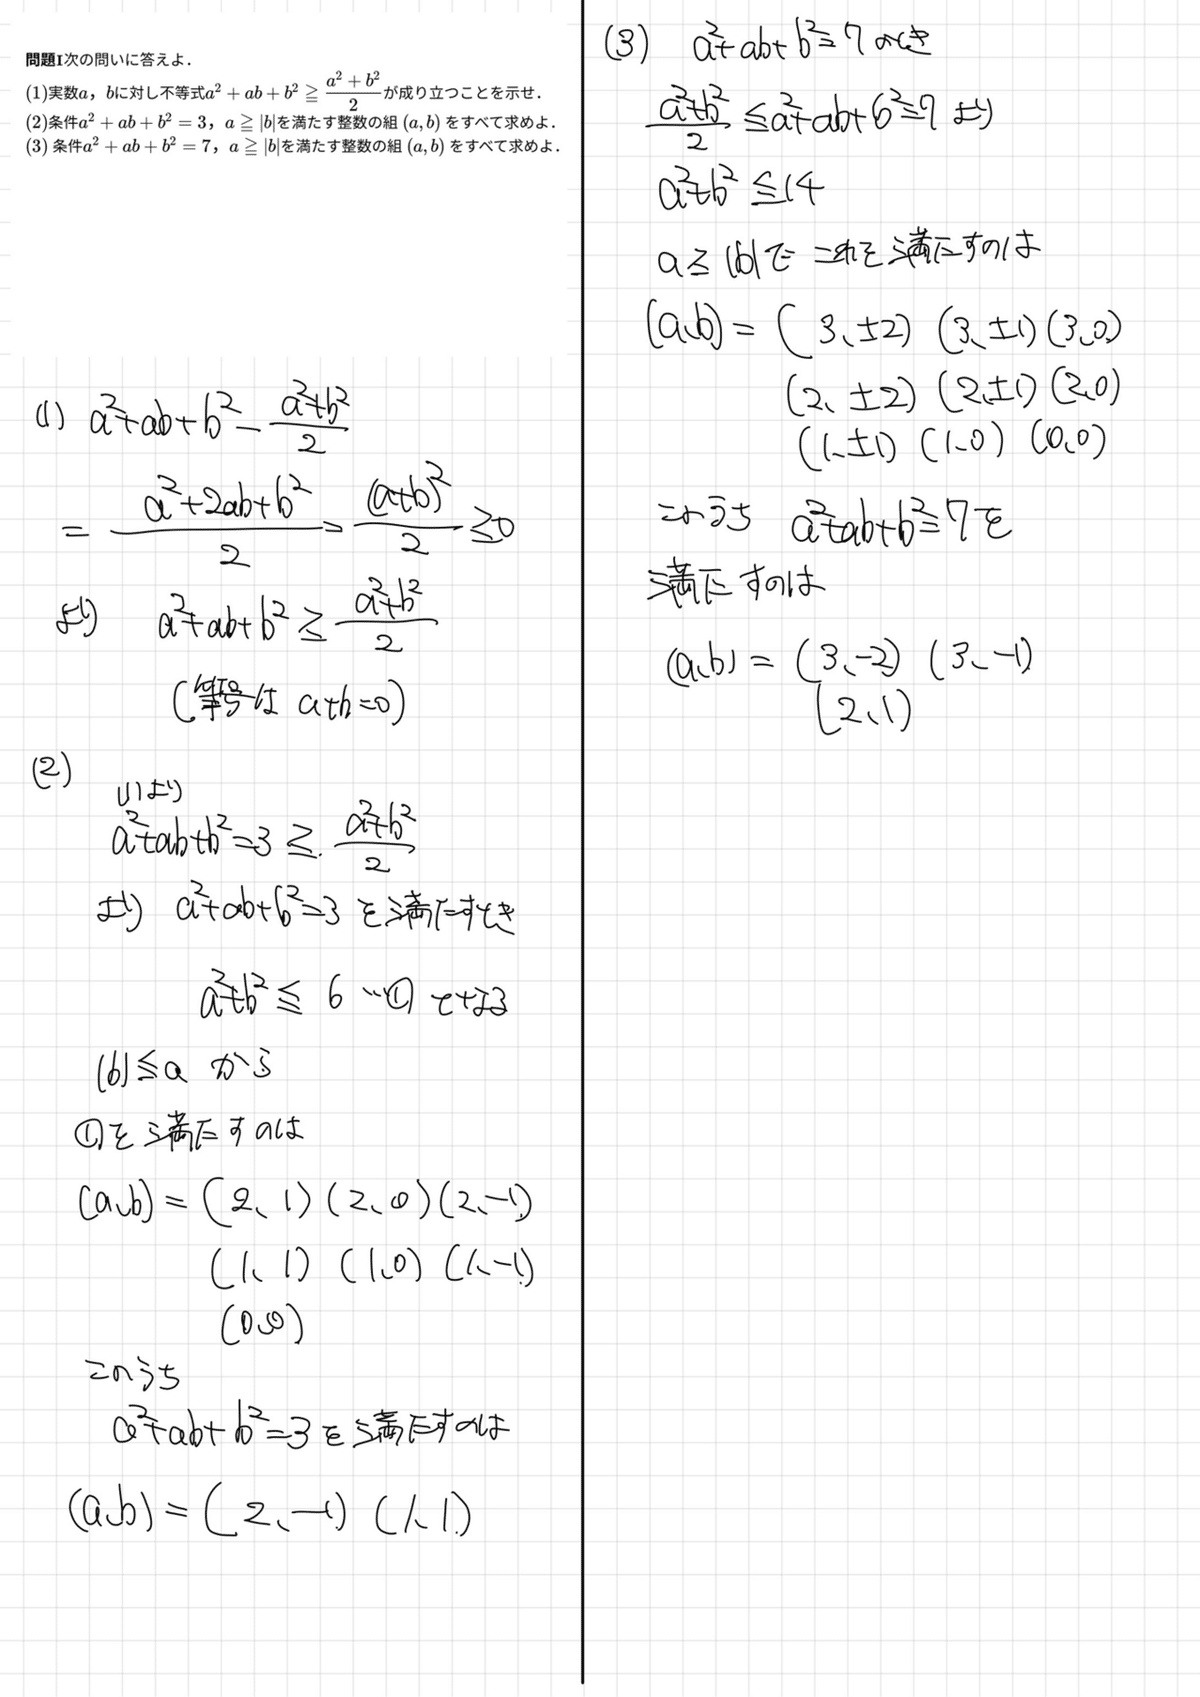 問題I次の問いに答えよ.
(1)実数a, bに対し不等式a² + ab + b² ≧ (a² + b²)/2 が成り立つことを示せ.
(2)条件a² + ab + b² = 3, a ≧ |b|を満たす整数の組 (a, b) をすべて求めよ.
(3) 条件a² + ab + b² = 7, a ≧ |b|を満たす整数の組 (a, b) をすべて求めよ.
(1) a²+ab+b² - (a²+b²)/2
= (a²+2ab+b²)/2 = (a+b)²/2 ≧0
より a²+ab+b² ≧ (a²+b²)/2
(等号は a+b=0)
(2)
(1)より
a²+ab+b²=3 ≧ (a²+b²)/2
より a²+ab+b²=3 を満たすとき
a²+b² ≦ 6 …① となる
|b|≦a から
①を満たすのは
(a、b) = (2、1) (2、0) (2、-1)
(1、1) (1、0) (1、-1)
(0、0)
このうち
a²+ab+b²=3を満たすのは
(a、b) = (2、-1) (1、1)
(3) a²+ab+b²=7 のとき
(a²+b²)/2 ≦a²+ab+b²=7 より
a²+b² ≦14
a≧|b|で これを満たすのは
(a、b) = (3、±2) (3、±1) (3、0)
(2、±2) (2、±1) (2、0)
(1、±1) (1、0) (0、0)
このうち a²+ab+b²=7を
満たすのは
(a、b) = (3、-2) (3、-1)
(2、1)